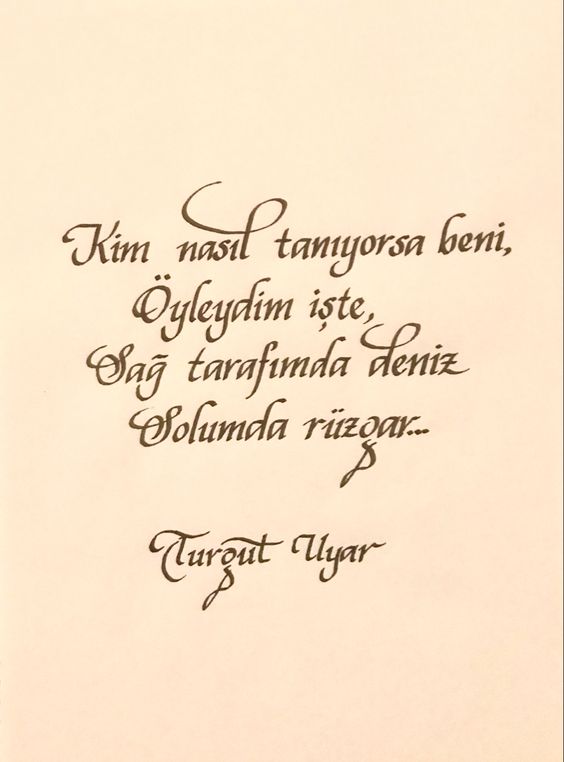 Kim nasıl tanıyorsa beni,
Öyleydim işte,
Sağ tarafımda deniz
Solumda rüzgar...
Turgut Uyar